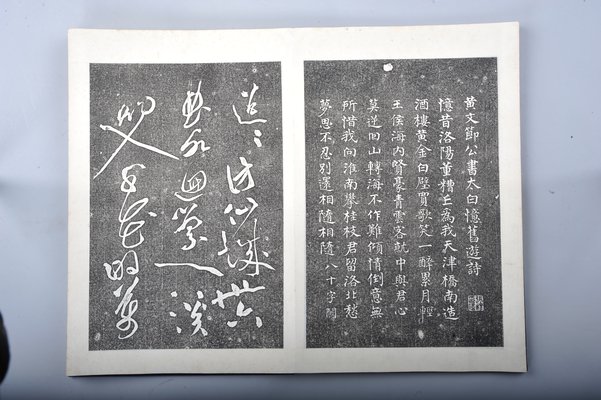 黄文節公書太白憶舊遊詩
憶昔洛陽董糟丘為我天津橋南造
酒樓黄金白璧買歌笑一醉累月輕
王侯海内賢豪青雲客就中與君心
莫逆回山轉海不作難傾情倒意無
所惜我向淮南攀桂枝君留洛北愁
夢思不忍別還相隨相隨八十字闕
迢〻訪仙城卅六
曲水迴縈一溪
初入千花明萬